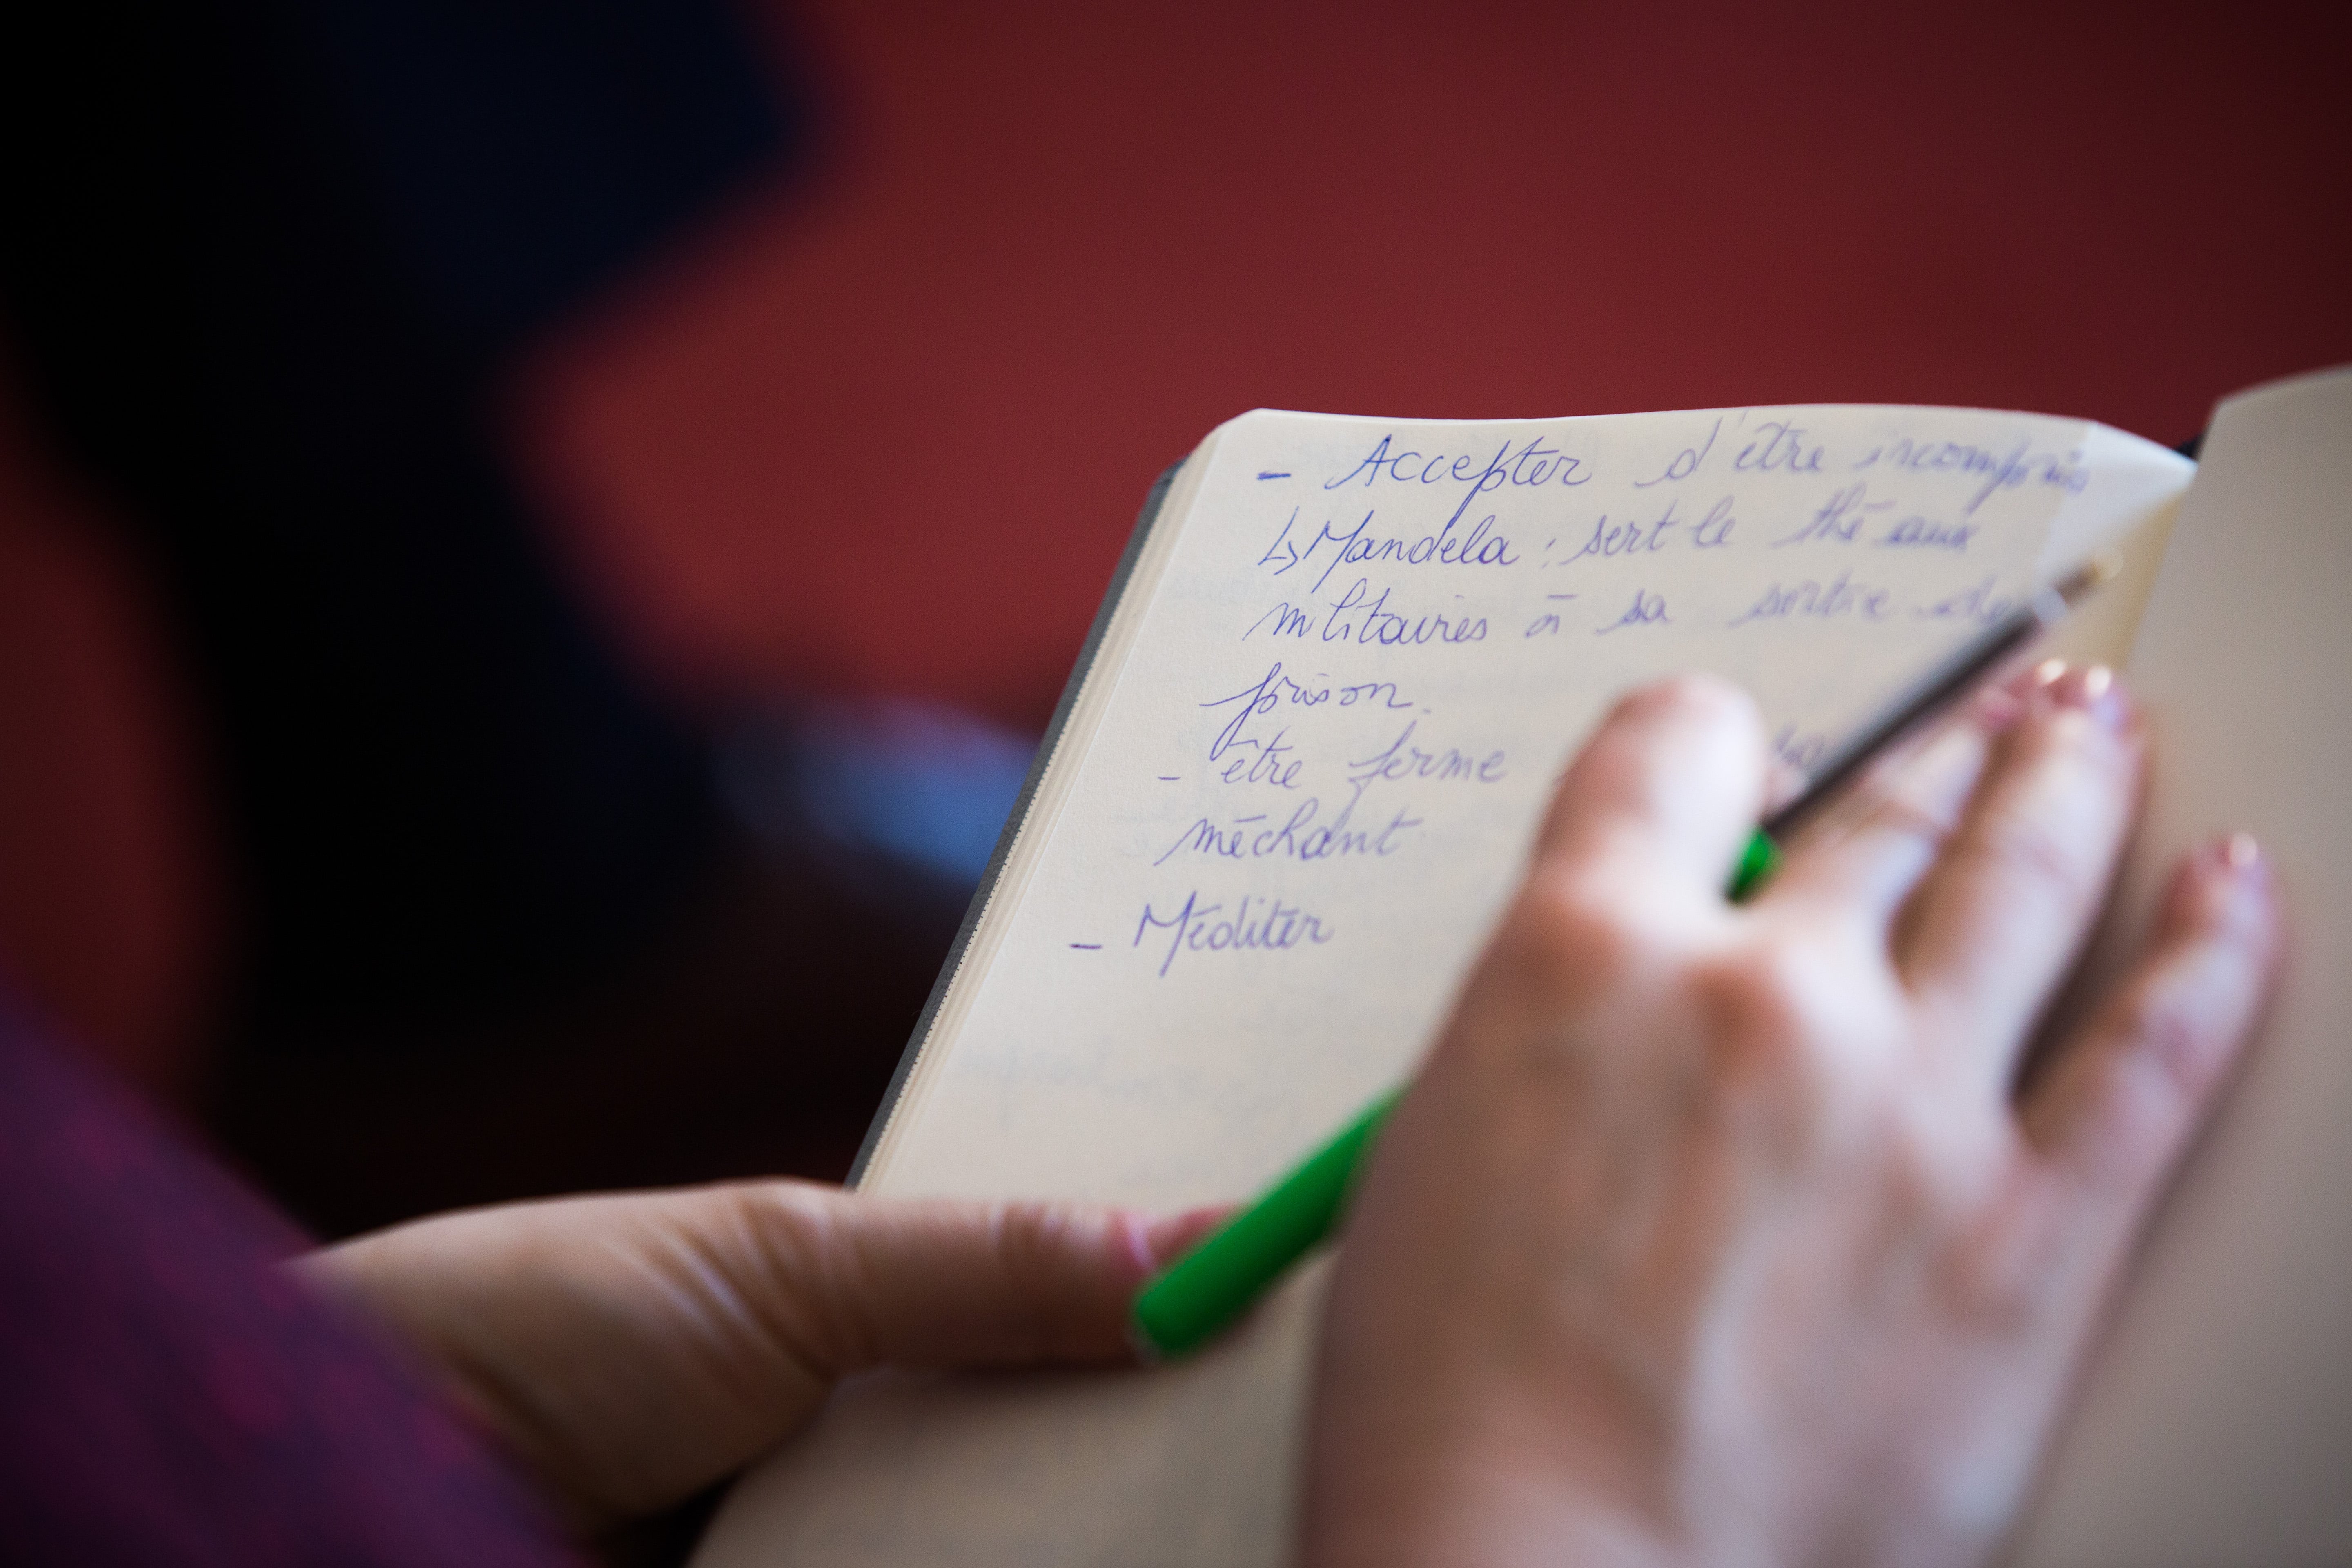 - Accepter d'être incompris
↳ Mandela : sert le thé aux
militaires à sa sortie de
prison.
- être ferme
méchant
- Méditer